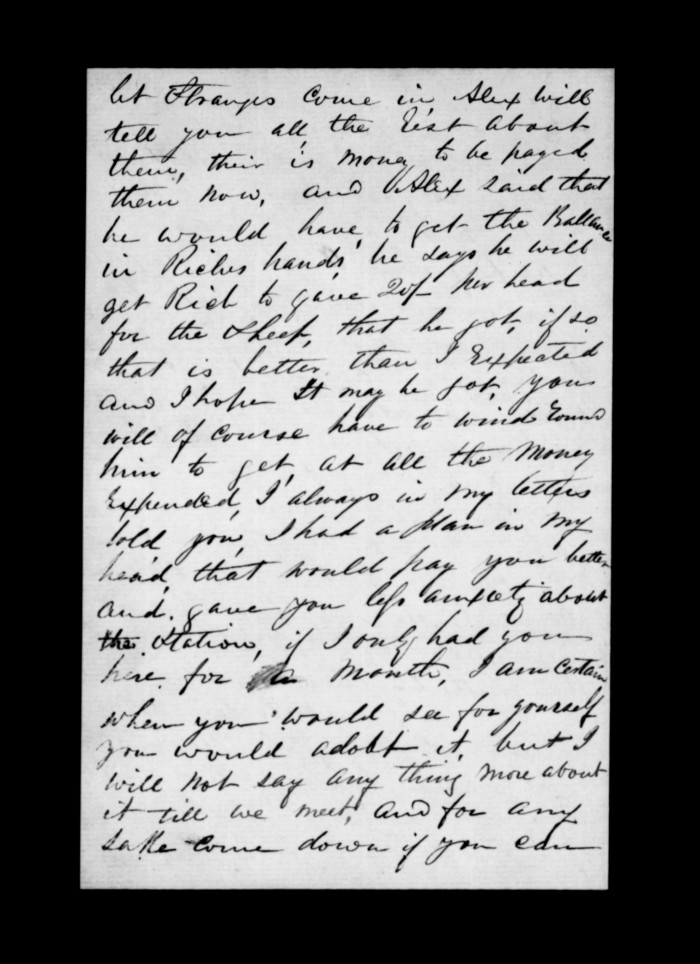 let Stranges come in, Alex will
tell you all, the rest about
them, their is money to be payed
them now, and Alex said that
he would have to get the Ballance
in Riches hands, he says he will
get Rich to gave 20/- per head
for the Sheep, that he got, if so
that is better than I Expected
and I hope It may be got, you
will of course have to wind round
him to get, at all the Money
Expended, I always in my letters
told you, I had a plan in my
head, that would pay you better
and gave you less anxiety about
the Station, if I only had you
here for a Month, I am certain
when you would see for yourself
you would adobt it, but I
will not say any thing more about
it till we meet, and for any
sake come down if you can